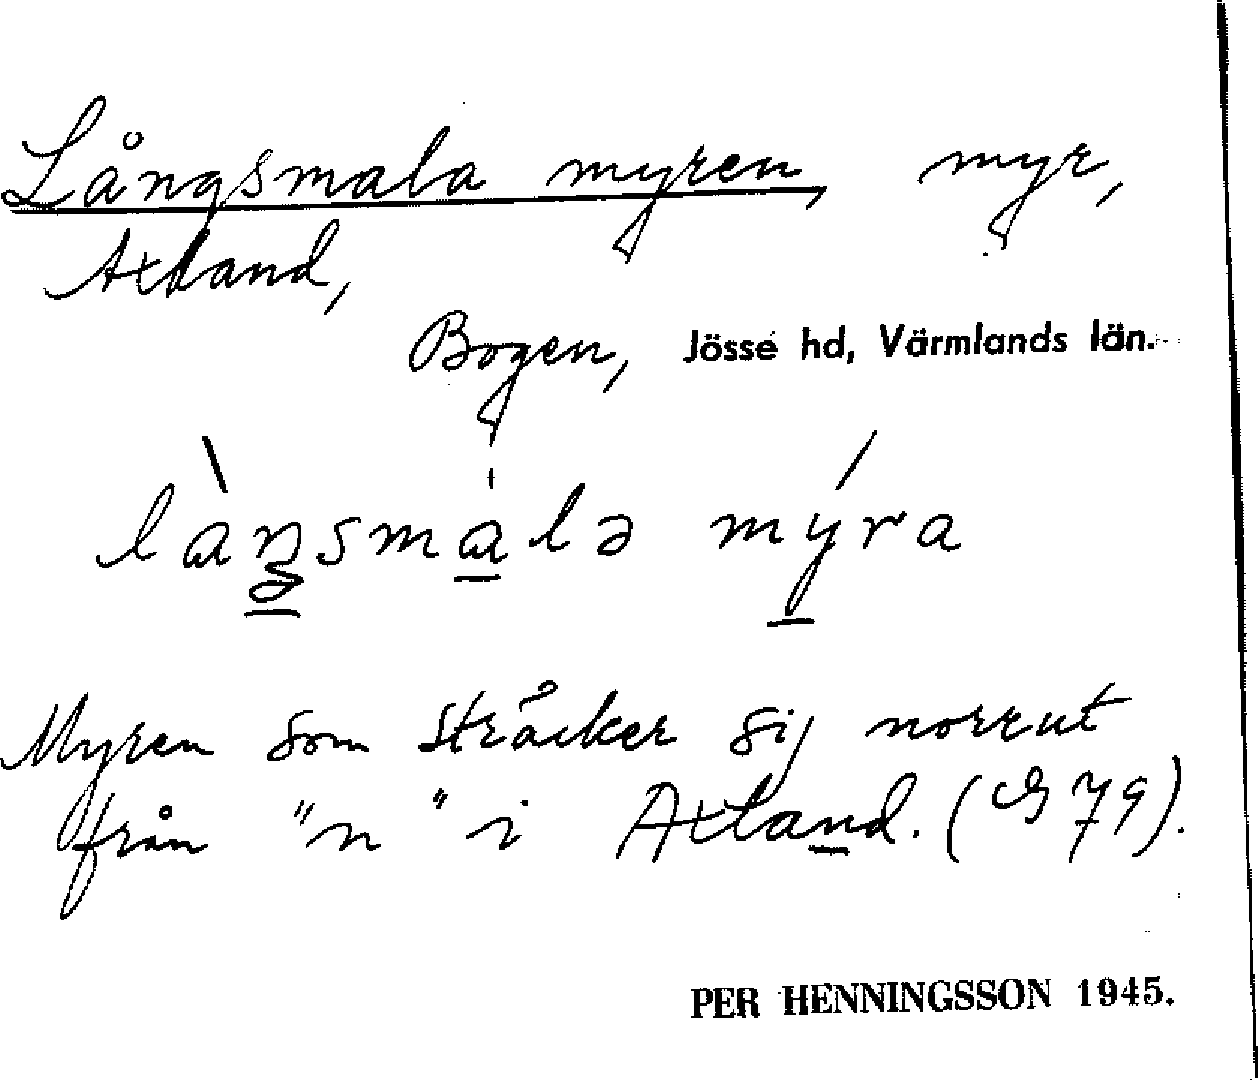 Långsmala myren, myr,
Axland,
Bogen, Jösse hd, Värmlands län.
làŋsmalə mýra
Myren som sträcker sig norrut
från "n" i Axland. (G 79).
PER HENNINGSSON 1945.